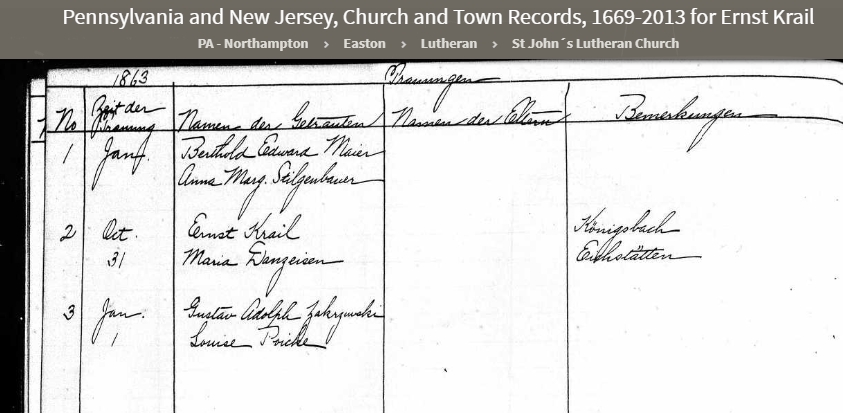 Pennsylvania and New Jersey, Church and Town Records, 1669-2013 for Ernst Krail
PA - Northampton > Easton > Lutheran > St John´s Lutheran Church
1863 Trauungen
No Zeit der Trauung Namen der Getrauten Namen der Eltern Bemerkungen
1 Jan. Berthold Edward Maier
Anna Marg. Stilgenbauer
2 Oct. Ernst Krail Königsbach
31 Maria Danzeisen Eichstätten
3 Jan. Gustav Adolph Zakrzwski
1 Louise Poicke